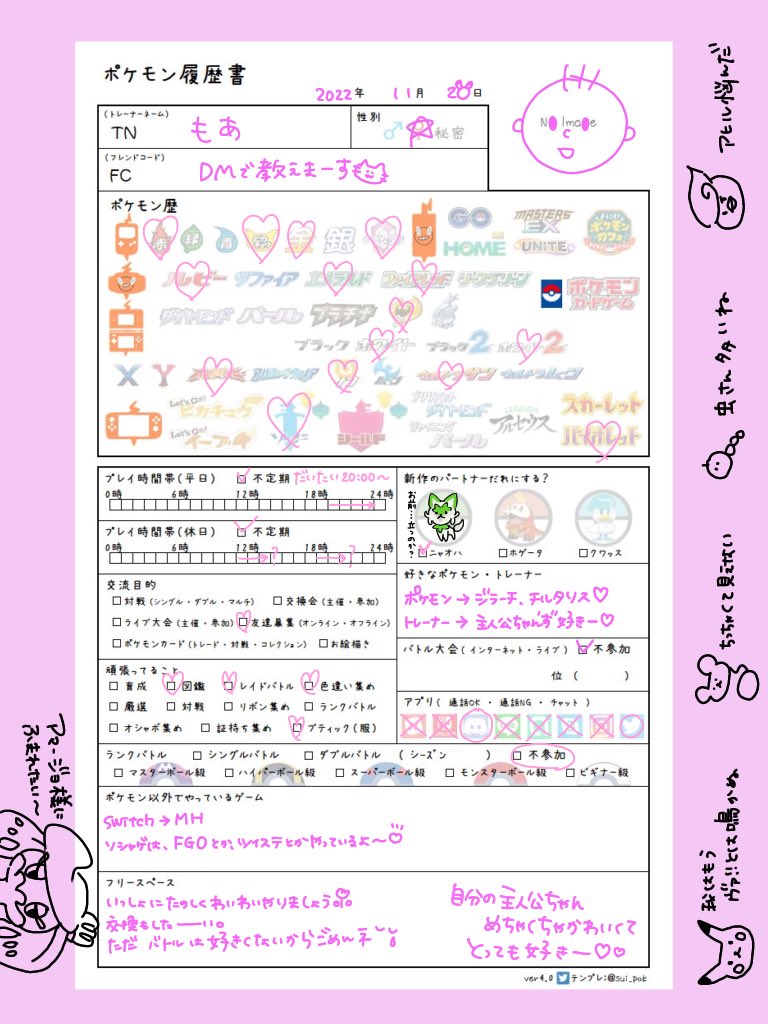 ポケモン履歴書
2022年 11月 20日
(トレーナーネーム)
TN もあ
性別
♂ ♀ 秘密
(フレンドコード)
FC DMで教えまーす
No Image
ポケモン歴
赤 緑 青 ピカチュウ 金 銀
GO
HOME
MASTERS EX
UNITE
ポケモンカフェ
ルビー サファイア エメラルド ファイアレッド リーフグリーン
ポケモンカードゲーム
ダイヤモンド パール プラチナ
ブラック ホワイト ブラック2 ホワイト2
X Y オメガルビー アルファサファイア ウルトラサン ウルトラムーン
Let's Go! ピカチュウ
Let's Go! イーブイ
ソード シールド
ブリリアントダイヤモンド
シャイニングパール
LEGENDS アルセウス
スカーレット
バイオレット
プレイ時間帯(平日) 不定期 だいたい20:00〜
0時 6時 12時 18時 24時
プレイ時間帯(休日) 不定期
0時 6時 12時 18時 24時
? ?
新作のパートナーだれにする?
お前…立つのか?
ニャオハ ホゲータ クワッス
交流目的
対戦(シングル・ダブル・マルチ) 交換会(主催・参加)
ライブ大会(主催・参加) 友達募集(オンライン・オフライン)
ポケモンカード(トレード・対戦・コレクション) お絵描き
好きなポケモン・トレーナー
ポケモン→ジラーチ、チルタリス♡
トレーナー→主人公ちゃんず好きー♡
バトル大会(インターネット・ライブ) 不参加
位 ( )
頑張ってること
育成 図鑑 レイドバトル 色違い集め
厳選 対戦 リボン集め ランクバトル
オシャボ集め 証持ち集め ブティック(服)
アプリ( 通話OK・通話NG・チャット )
ランクバトル シングルバトル ダブルバトル (シーズン ) 不参加
マスターボール級 ハイパーボール級 スーパーボール級 モンスターボール級 ビギナー級
ポケモン以外でやっているゲーム
switch→MH
ソシャゲは、FGOとか、ツイステとかやっているよ〜♡
フリースペース
いっしょにたのしくわいわいやりましょう
交換もしたーい。
ただ バトルは好きくないからごめんネ
自分の主人公ちゃん
めちゃくちゃかわいくて
とっても好きー♡♡
ver4.0 テンプレ:@sui_pok
アヒル悩んだ
虫さんタタいね
ちっちゃくて見えない
私はもう
ヴァ!!とは鳴かぬ
アマージョ様に
ふまれたい〜